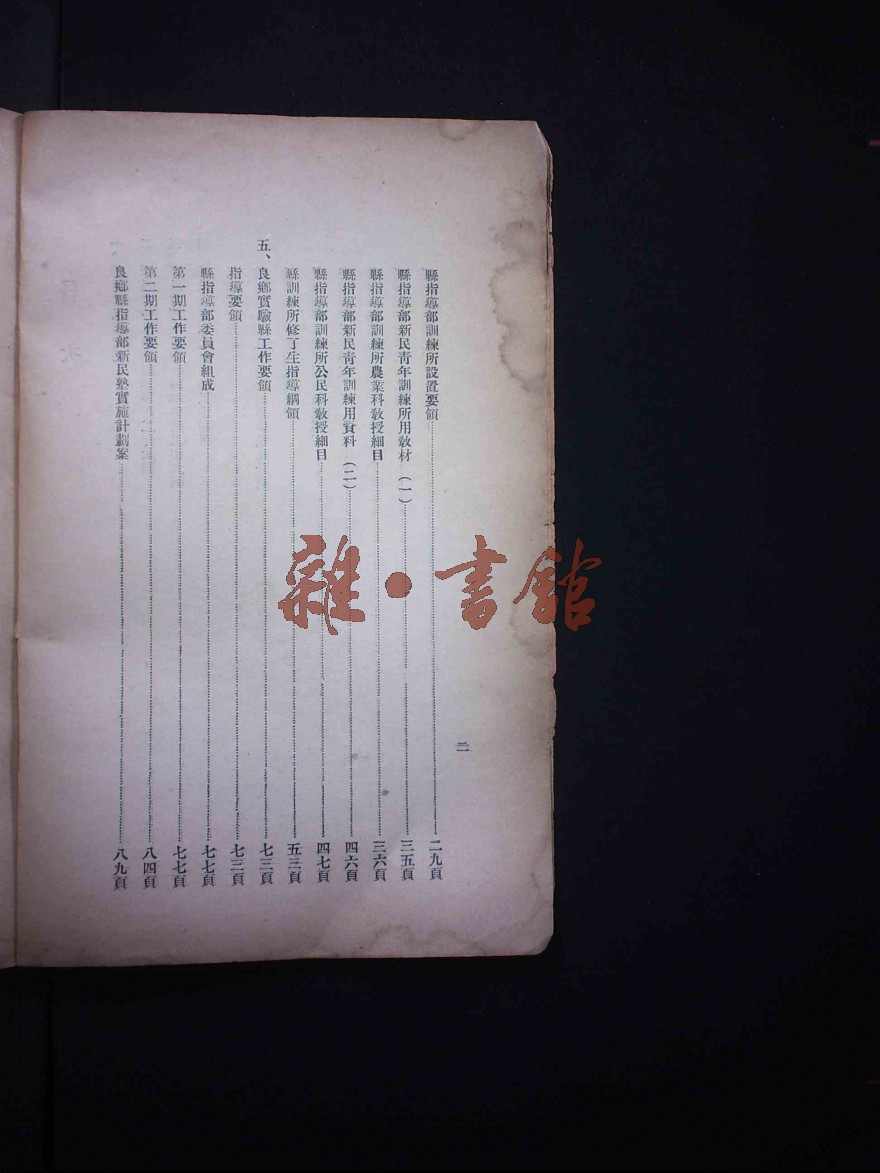 縣指導部訓練所設置要領……二九頁
縣指導部新民靑年訓練所用敎材(一)……三五頁
縣指導部訓練所農業科敎授細目……三六頁
縣指導部新民靑年訓練用資料(二)……四六頁
縣指導部訓練所公民科敎授細目……四七頁
縣訓練所修了生指導綱領……五三頁
五、良鄉實驗縣工作要領……七三頁
指導要領……七三頁
縣指導部委員會組成……七七頁
第一期工作要領……七七頁
第二期工作要領……八四頁
良鄉縣指導部新民塾實施計劃案……八九頁
二
雜·書館